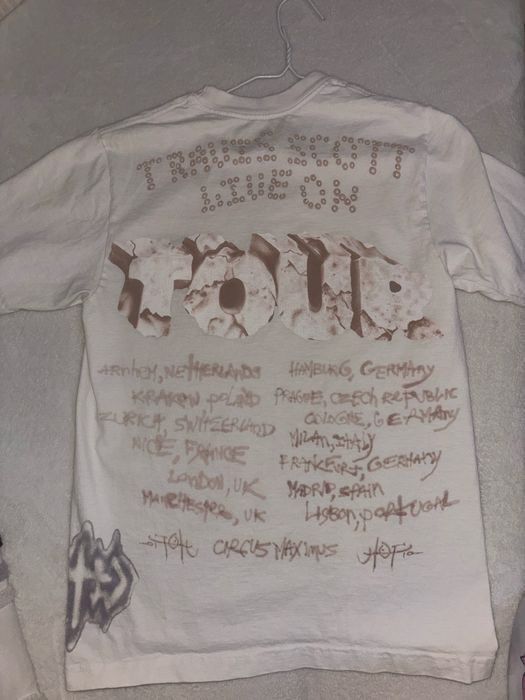 TRAVIS SCOTT
LIVE ON
TOUR
ARNHEM, NETHERLANDS
KRAKOW POLAND
ZURICH, SWITZERLAND
NICE, FRANCE
LONDON, UK
MANCHESTER, UK
HAMBURG, GERMANY
PRAGUE, CZECH REPUBLIC
COLOGNE, GERMANY
MILAN, ITALY
FRANKFURT, GERMANY
MADRID, SPAIN
LISBON, PORTUGAL
CIRCUS MAXIMUS